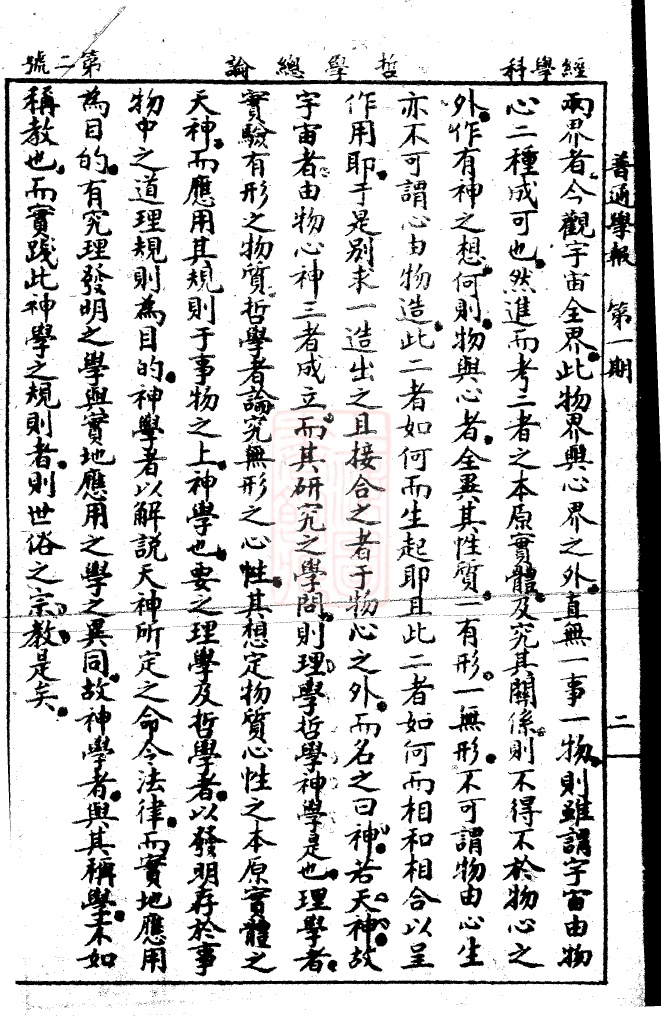 經學科
哲學總論
第二號
普通學報 第一期
二一
兩界者。今觀宇宙全界。此物界與心界之外。直無一事一物。則雖謂宇宙由物
心二種成可也。然進而考二者之本原實體。及究其關係。則不得不於物心之
外。作有神之想。何則。物與心者。全異其性質。一有形。一無形。不可謂物由心生
亦不可謂心由物造。此二者如何而生起耶。且此二者如何而相和相合以呈
作用耶。于是別求一造出之且接合之者于物心之外。而名之曰神。若天神。故
宇宙者。由物心神三者成立。而其研究之學問。則理學哲學神學是也。理學者。
實驗有形之物質。哲學者。論究無形之心性。其想定物質心性之本原實體之
天神。而應用其規則于事物之上。神學也。要之理學及哲學者。以發明存於事
物中之道理規則為目的。神學者。以解說天神所定之命令法律。而實地應用
為目的。有究理發明之學與實地應用之學之異同。故神學者。與其稱學。不如
稱教也。而實踐此神學之規則者。則世俗之宗教是矣。